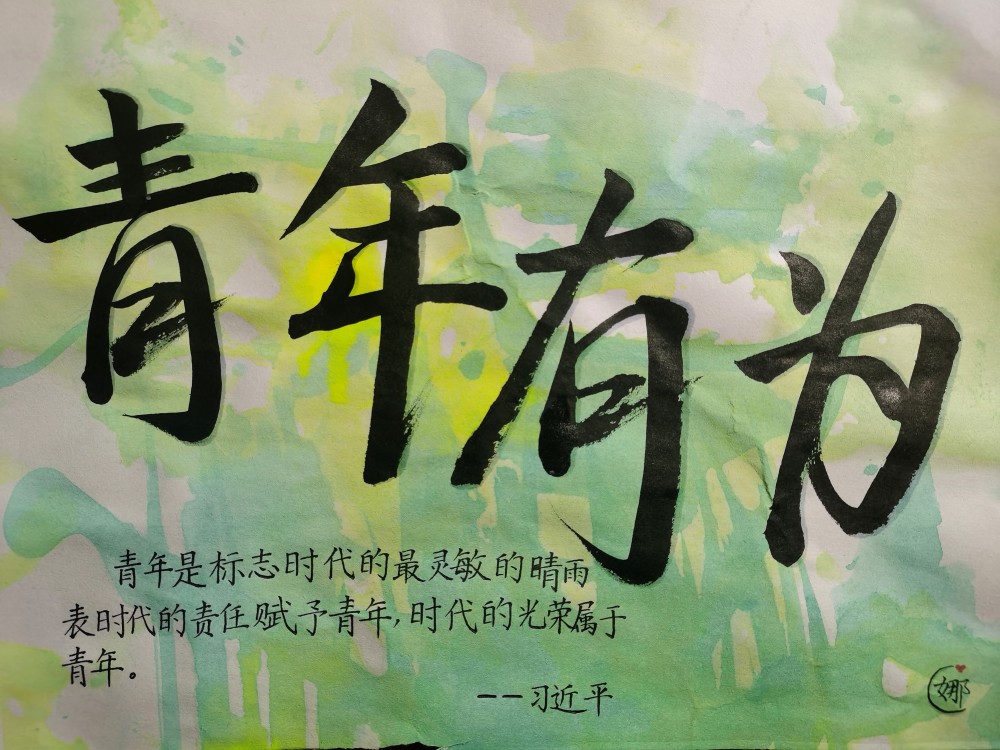 青年有为
青年是标志时代的最灵敏的晴雨
表时代的责任赋予青年,时代的光荣属于
青年。
——习近平
娜